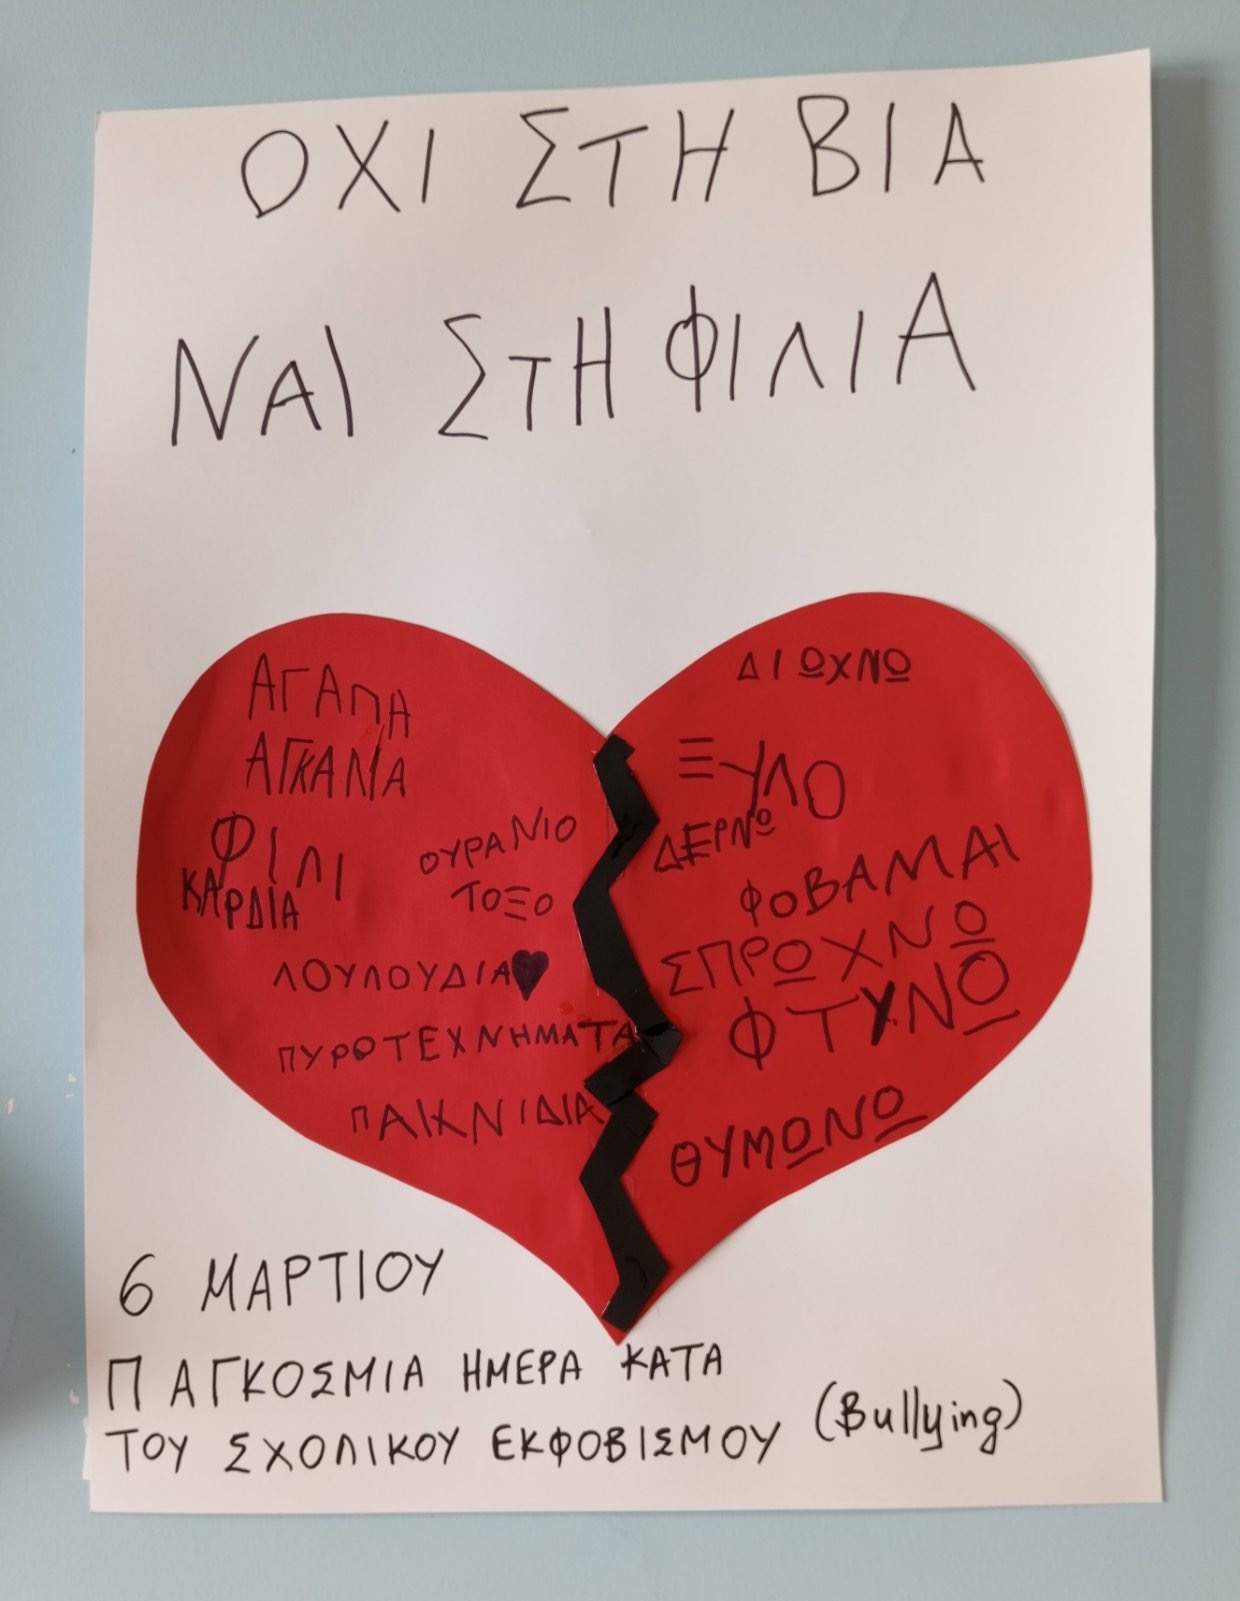 ΟΧΙ ΣΤΗ ΒΙΑ
ΝΑΙ ΣΤΗ ΦΙΛΙΑ
ΑΓΑΠΗ
ΑΓΚΑΛΙΑ
ΦΙΛΙ
ΚΑΡΔΙΑ
ΟΥΡΑΝΙΟ
ΤΟΞΟ
ΛΟΥΛΟΥΔΙΑ
ΠΥΡΟΤΕΧΝΗΜΑΤΑ
ΠΑΙΧΝΙΔΙΑ
ΔΙΩΧΝΩ
ΞΥΛΟ
ΔΕΡΝΩ
ΦΟΒΑΜΑΙ
ΣΠΡΩΧΝΩ
ΦΤΥΝΩ
ΘΥΜΩΝΩ
6 ΜΑΡΤΙΟΥ
ΠΑΓΚΟΣΜΙΑ ΗΜΕΡΑ ΚΑΤΑ
ΤΟΥ ΣΧΟΛΙΚΟΥ ΕΚΦΟΒΙΣΜΟΥ (Bullying)